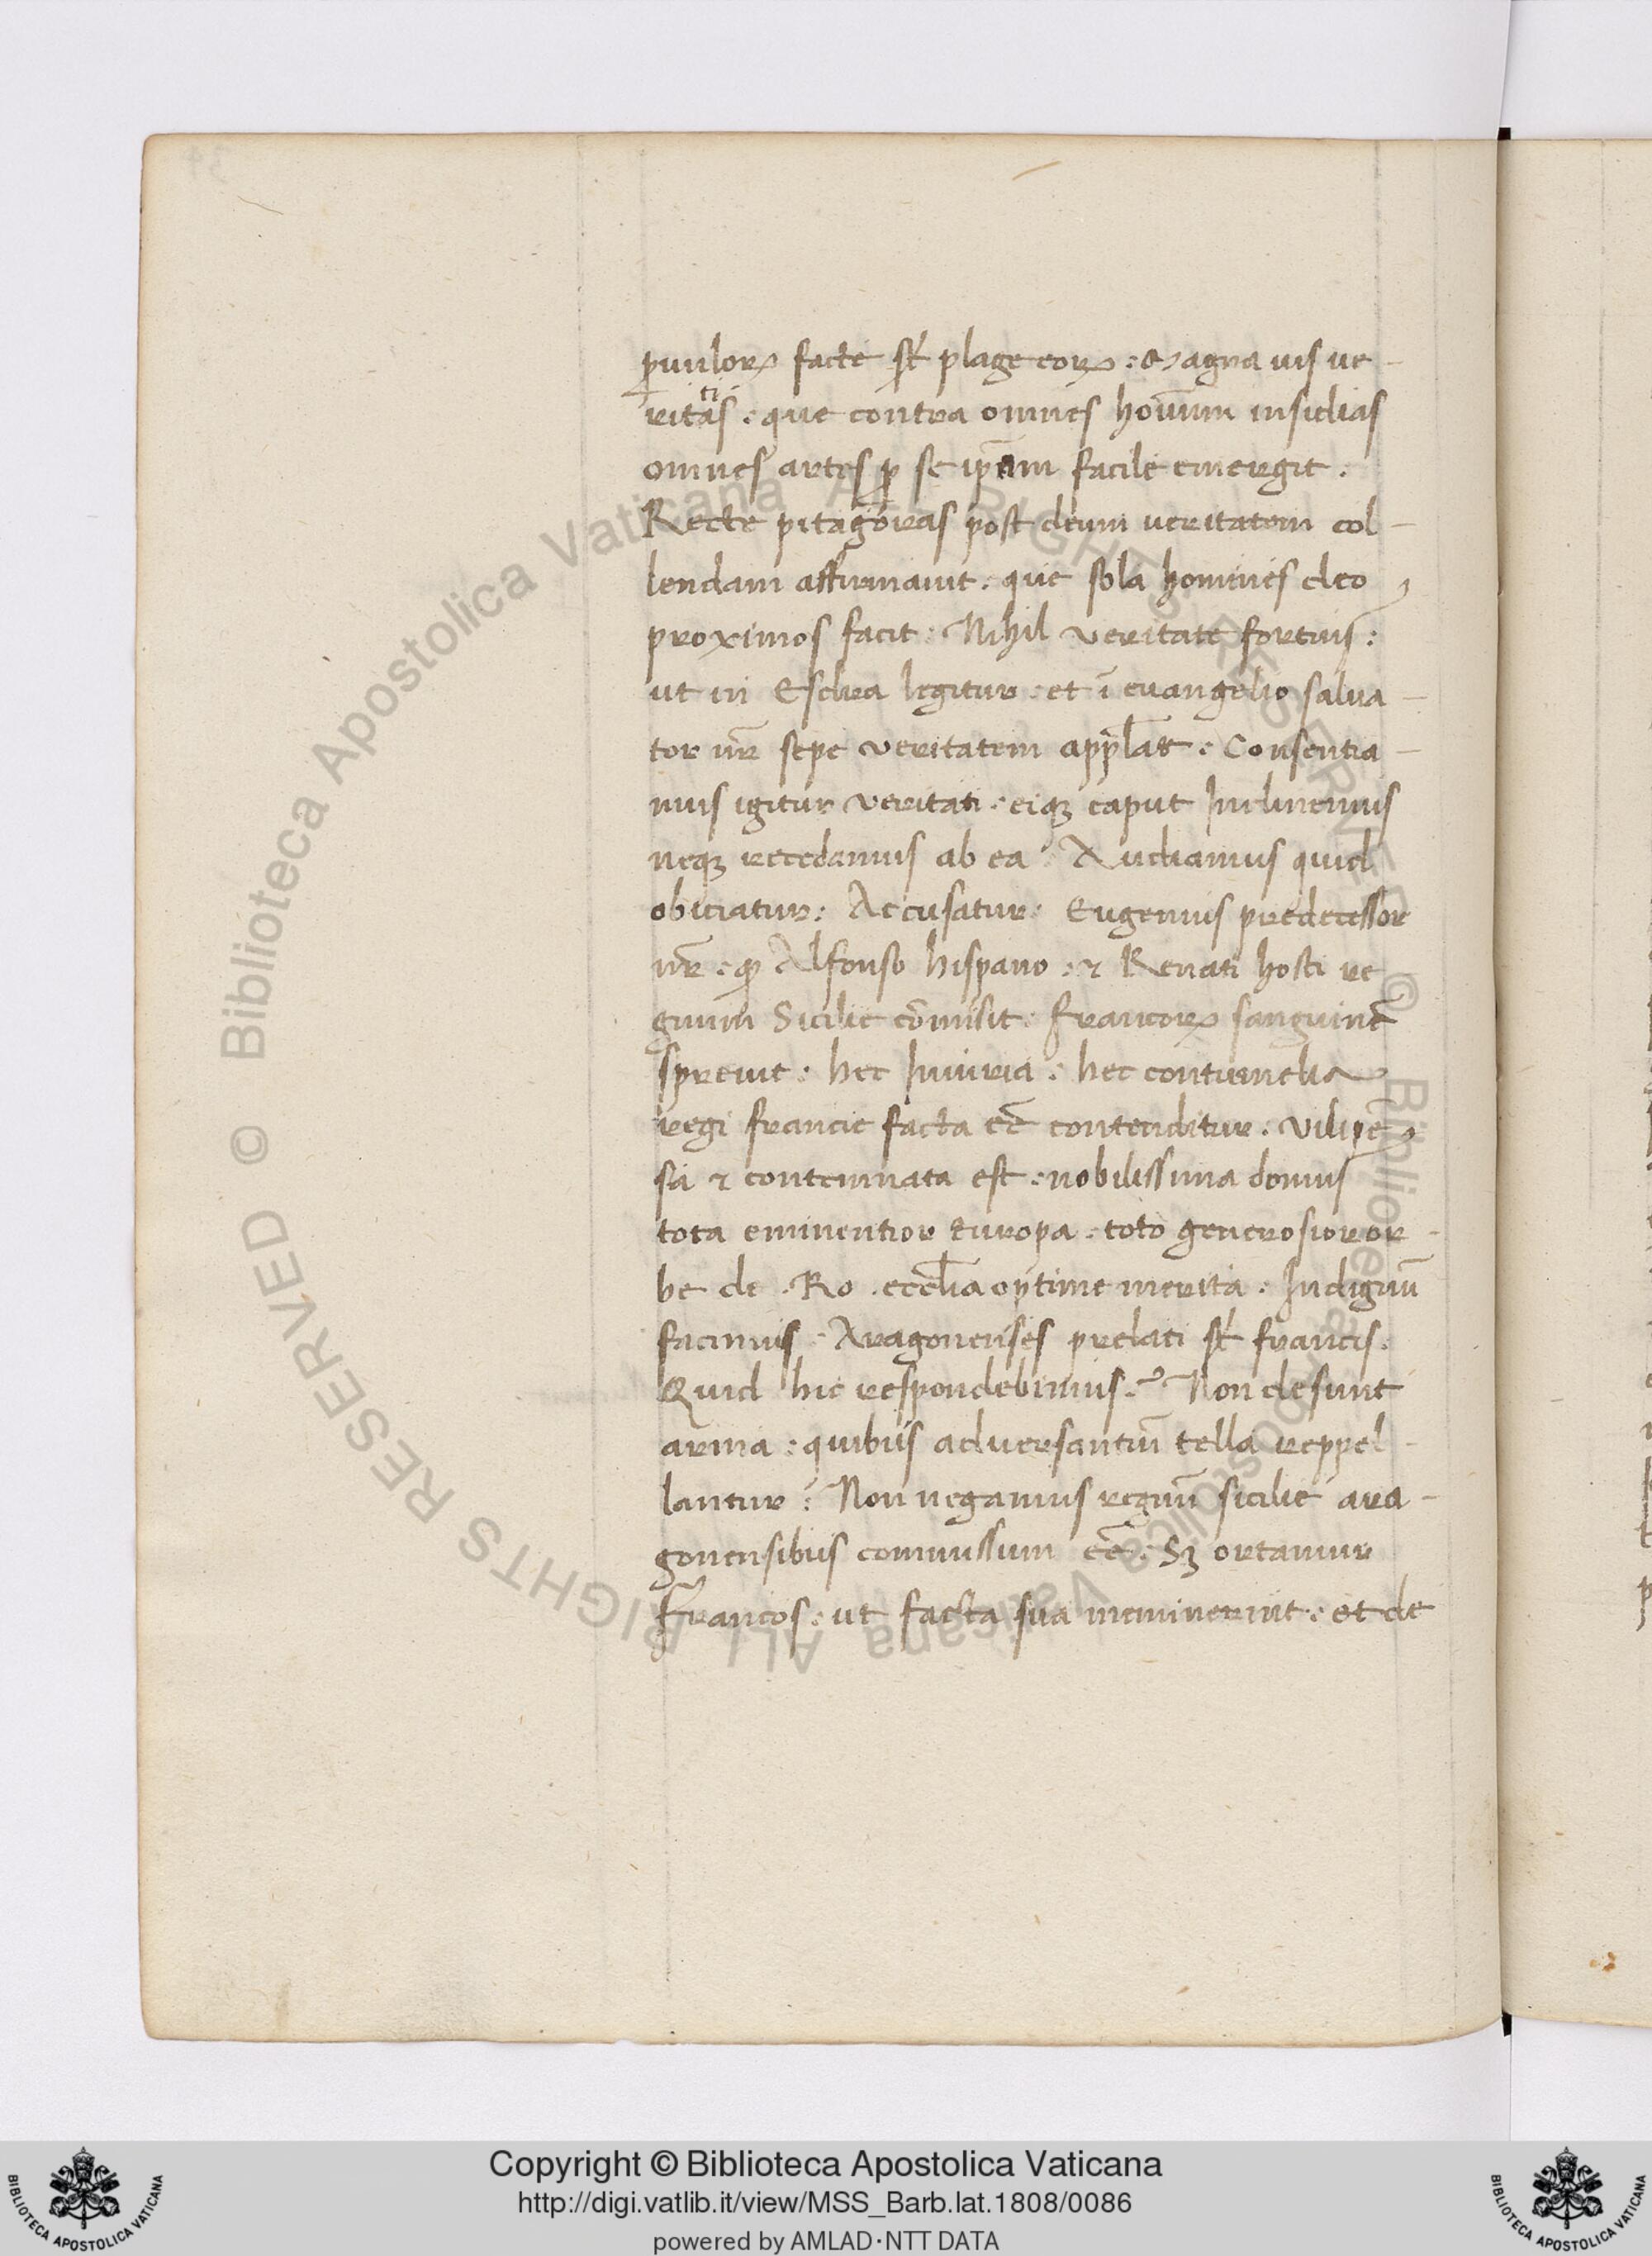 ꝑuulorꝝ facte st̄ plage eorꝝ : Magna uis ue-
ritatis : que contra omnes hoīum insidias
omnes artes ꝑ se ip̄am facile emergit .
Recte pitagoras post deum ueritatem col-
lendam affirmauit . que sola homines deo
proximos facit : Nihil veritate fortius :
ut in Esdra legitur . et ī euangelio salua-
tor nr̄ sepe veritatem app̄lat . Consentia-
mus igitur veritati . eiqꝫ caput Inclinemus
neqꝫ recedamus ab ea : Audiamus quid
obiciatur : Accusatur : Eugenius predecessor
nr̄ . qꝫ Alfonso hispano . ⁊ Renati hosti re
gnum Sicilie cōmisit : francorꝝ sanguinē
spreuit : hec Iniuria : hec contumelia
regi francie facta eē contenditur . vilipē
sa ⁊ contemnata est . nobilissima domus
tota eminentior Europa . toto generosior or-
be de . Ro . eccl̄ia optime merita . Indignū
facimus . Aragonenses prelati st̄ francis .
Quid hic respondebimus .? Non desunt
arma : quibus aduersantiū tella reppel-
lantur : Non negamus regnū sicilie ara-
gonensibus commissum eē . Sꝫ ortamur
Francos . ut facta sua meminerint . et de
Copyright © Biblioteca Apostolica Vaticana
http://digi.vatlib.it/view/MSS_Barb.lat.1808/0086
powered by AMLAD·NTT DATA
BIBLIOTECA APOSTOLICA VATICANA
BIBLIOTECA APOSTOLICA VATICANA
© Biblioteca Apostolica Vaticana ALL RIGHTS RESERVED
© Biblioteca Apostolica Vaticana ALL RIGHTS RESERVED